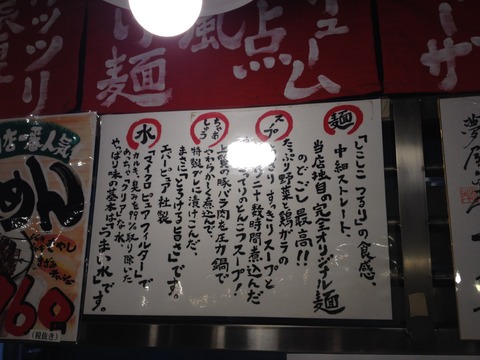 麺
「しこしこつるり」の食感、
中細ストレート、
のどごし最高!!
当店独自の完全オリジナル麺
スープ
たっぷり野菜と鶏ガラの
すっきりスープと
二十数時間煮込んだ
とんこつスープ!
ちゃあしゅう
上質な豚バラ肉を圧力鍋で
やわらかく煮込んで、
特製ダレに漬けこんだ、
まさに「とろける旨さ」です。
水
エバーピュア社製
「マイクロピュアフィルター」で
カルキ、臭みを99%取り除いた
クリアな水。
やっぱり味の基本は「うまい水」です。
店一番人気
めん
760
(税抜き)
麺
風
点
ューム
ーザ
ガッツリ